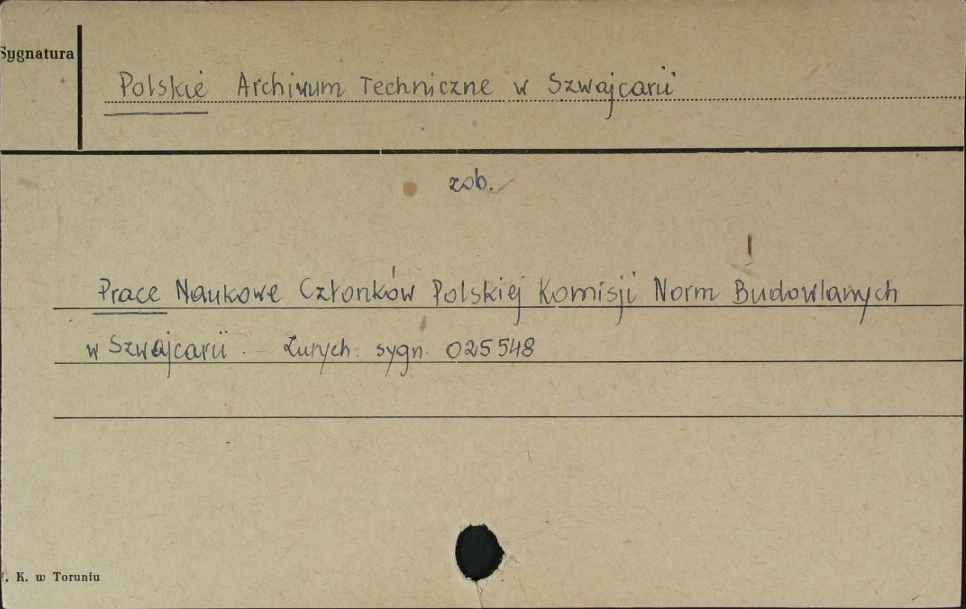 Sygnatura
Polskie Archiwum Techniczne w Szwajcarii
zob.
Prace Naukowe Członków Polskiej Komisji Norm Budowlanych
w Szwajcarii. Zurych. sygn. 025548
K. w Toruniu